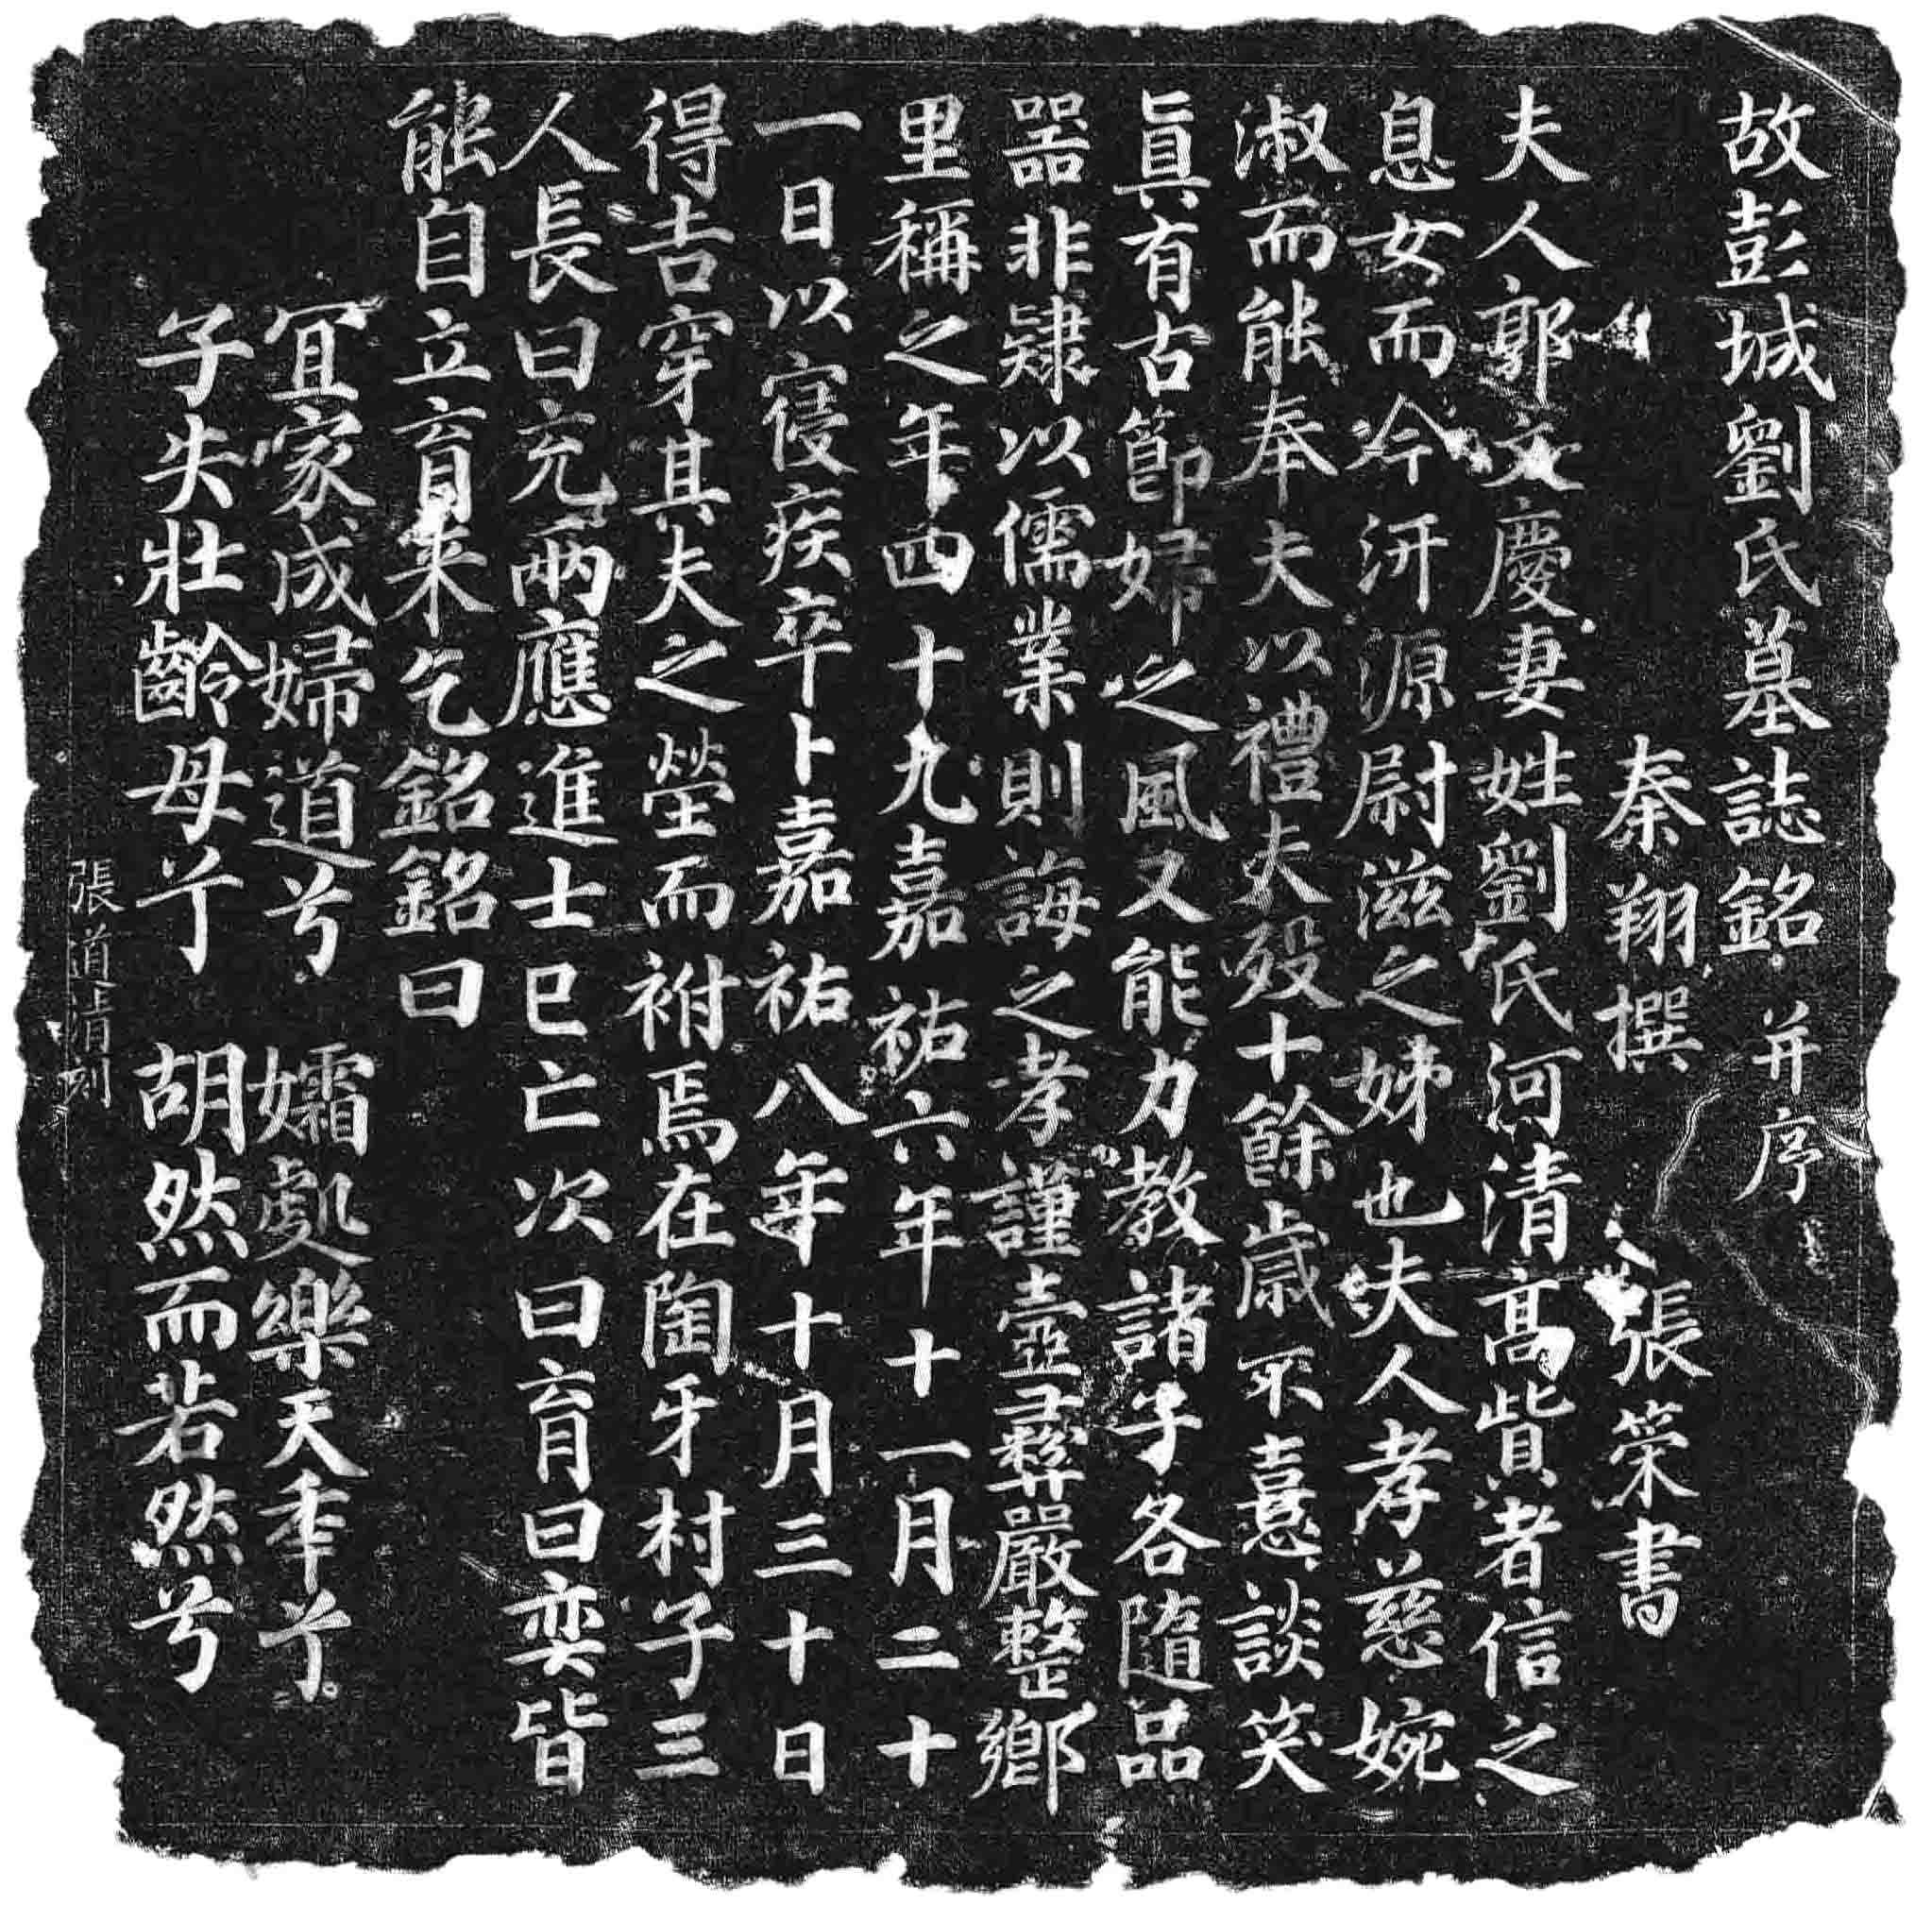 故彭城劉氏墓誌銘并序
秦翔撰 張荣書
夫人郭文慶妻姓劉氏河清髙貲者信之
息女而今汧源尉滋之姊也夫人孝慈婉
淑而能奉夫以禮夫殁十餘歳不憙談笑
眞有古節婦之風又能力教諸子各随品
器非隷以儒業則誨之孝謹壼彛嚴整鄉
里稱之年四十九嘉祐六年十一月二十
一日以寑疾卒卜嘉祐八年十月三十日
得吉穿其夫之塋而祔焉在陶牙村子三
人長曰充兩應進士已亡次曰育曰奕皆
能自立育来乞銘銘曰
冝家成婦道兮 孀處樂天年兮
子失壯齡母兮 胡然而若然兮
張道清刻